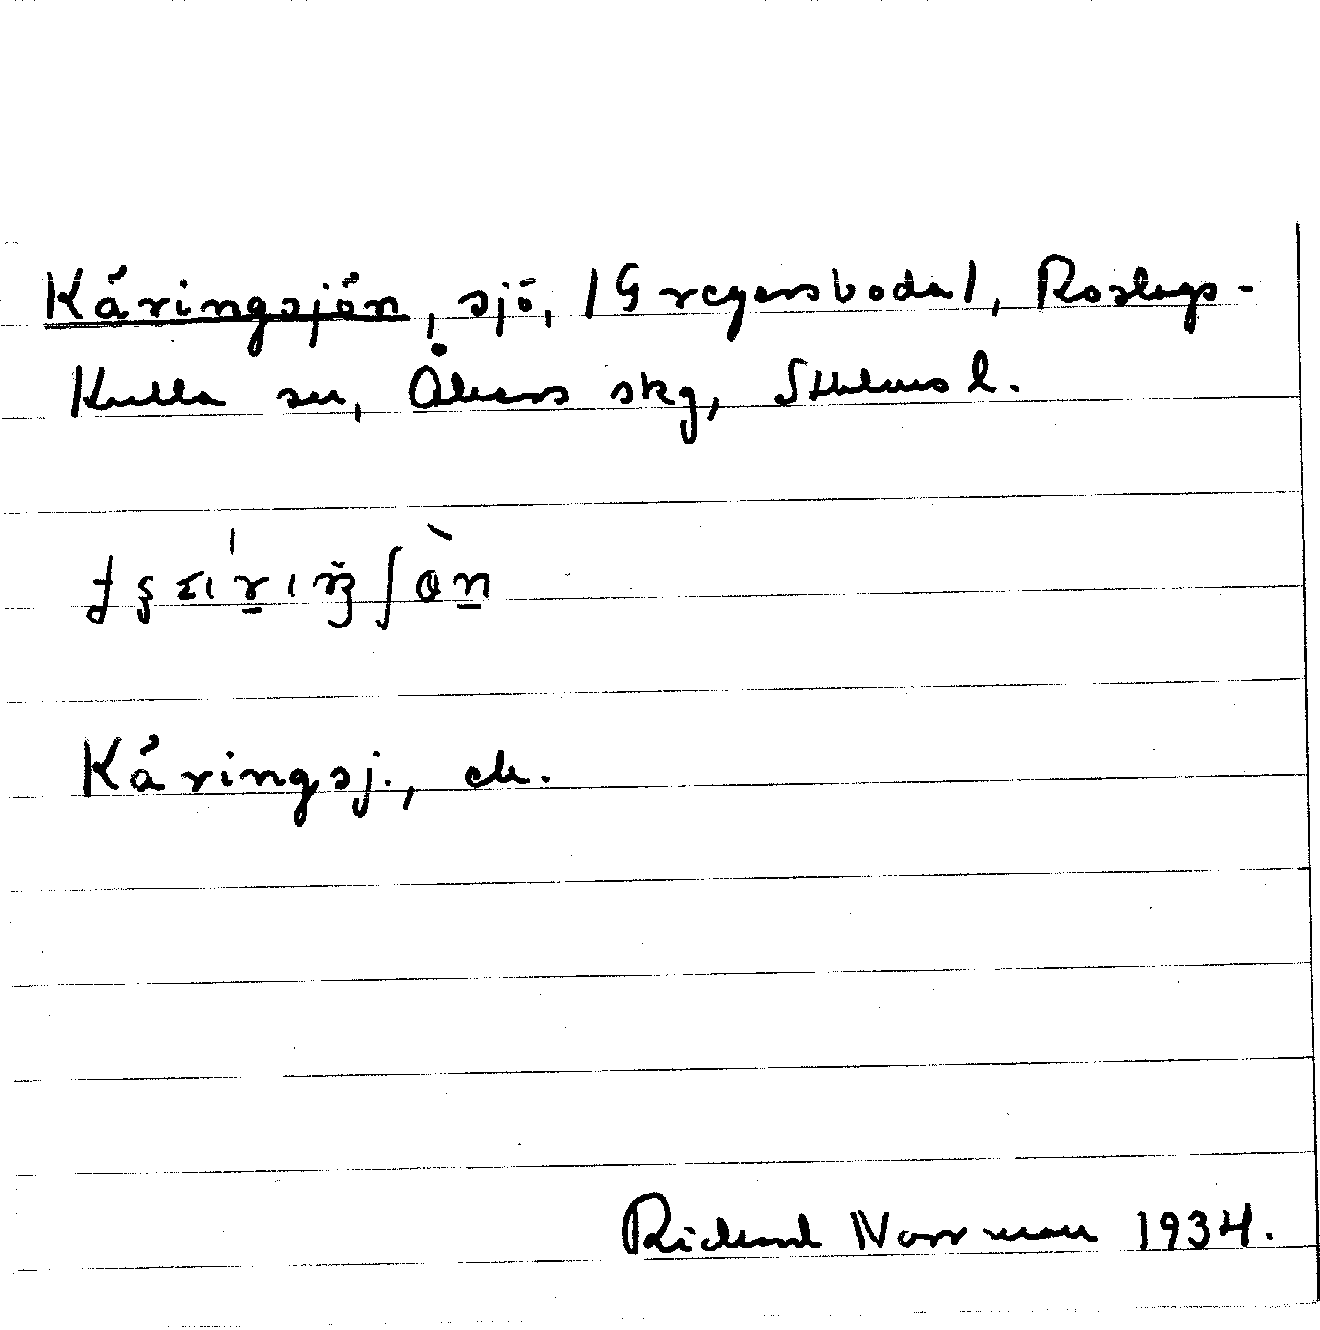 Käringsjön, sjö, /Gregersboda/, Roslags-
Kulla sn, Åkers skg, Sthlms l.
Käringsj., ek.
Richard Norrman 1934.